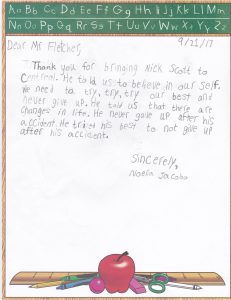 Aa Bb Cc Dd Ee Ff Gg Hh Ii Jj Kk Ll Mm
Nn Oo Pp Qq Rr Ss Tt Uu Vv Ww Xx Yy Zz
9/21/17
Dear Mr Fletcher,
Thank you for bringing Nick Scott to
Central. He told us to believe in our self.
We need to try, try, try our best and
never give up. He told us that there are
changes in life. He never gave up after his
accident. He tries his best to not give up
after his accident.
Sincerely,
Noelia Jacobo